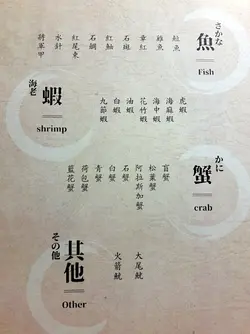 魚
さかな
Fish
雞魚
章紅
石斑
紅魽
石鯛
紅尾冬
水針
將軍甲
蝦
海老
shrimp
虎蝦
海麻蝦
海中蝦
花竹蝦
油蝦
白蝦
九節蝦
蟹
かに
crab
盲蟹
松葉蟹
阿拉斯加蟹
石蟹
白蟹
青蟹
荷包蟹
藍花蟹
其他
その他
Other
大尾魷
火箭魷